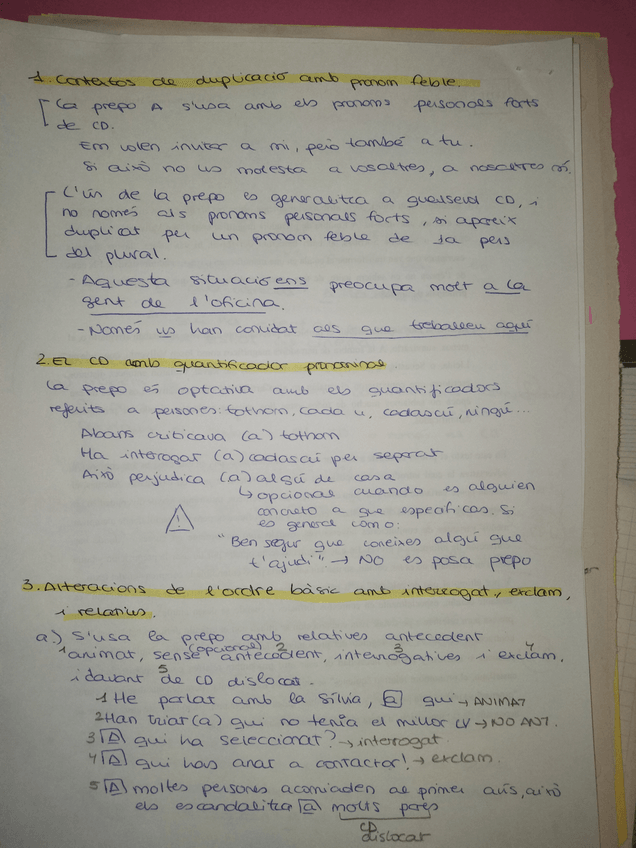 1. Contextos de duplicació amb pronom feble.
La prepo A s'usa amb els pronoms personals forts
de CD.
Em volen invitar a mi, però també a tu.
Si això no us molesta a vosaltres, a nosaltres sí.
L'ús de la prepo es generalitza a qualsevol CD, i
no només als pronoms personals forts, si apareix
duplicat per un pronom feble de 1a pers
del plural.
- Aquesta situació ens preocupa molt a la
gent de l'oficina.
- Només us han convidat als que treballeu aquí
2. El CD amb quantificador pronominal.
La prepo és optativa amb els quantificadors
referits a persones: tothom, cada u, cadascú, ningú...
Abans criticava (a) tothom
Ha interrogat (a) cadascú per separat
Això perjudica (a) algú de casa
↳ opcional cuando es alguien
concreto a que especificas. Si
es general como:
"Ben segur que coneixes algú que
t'ajudi" → NO es posa prepo
3. Alteracions de l'ordre bàsic amb interrogat, exclam,
i relatius.
a.) S'usa la prepo amb relatives antecedent
(opcional) 2 3 4
1 animat, sense antecedent, interrogatives i exclam.
5
i davant de CD dislocat.
1 He parlat amb la Sílvia, a qui → ANIMAT
2 Han triat (a) qui no tenia el millor CV → NO ANT.
3 A qui ha seleccionat? → interrogat
4 A qui has anat a contactar! → exclam.
5 A moltes persones acomiaden al primer avís, això
els escandalitza a molts pares
CD
dislocat